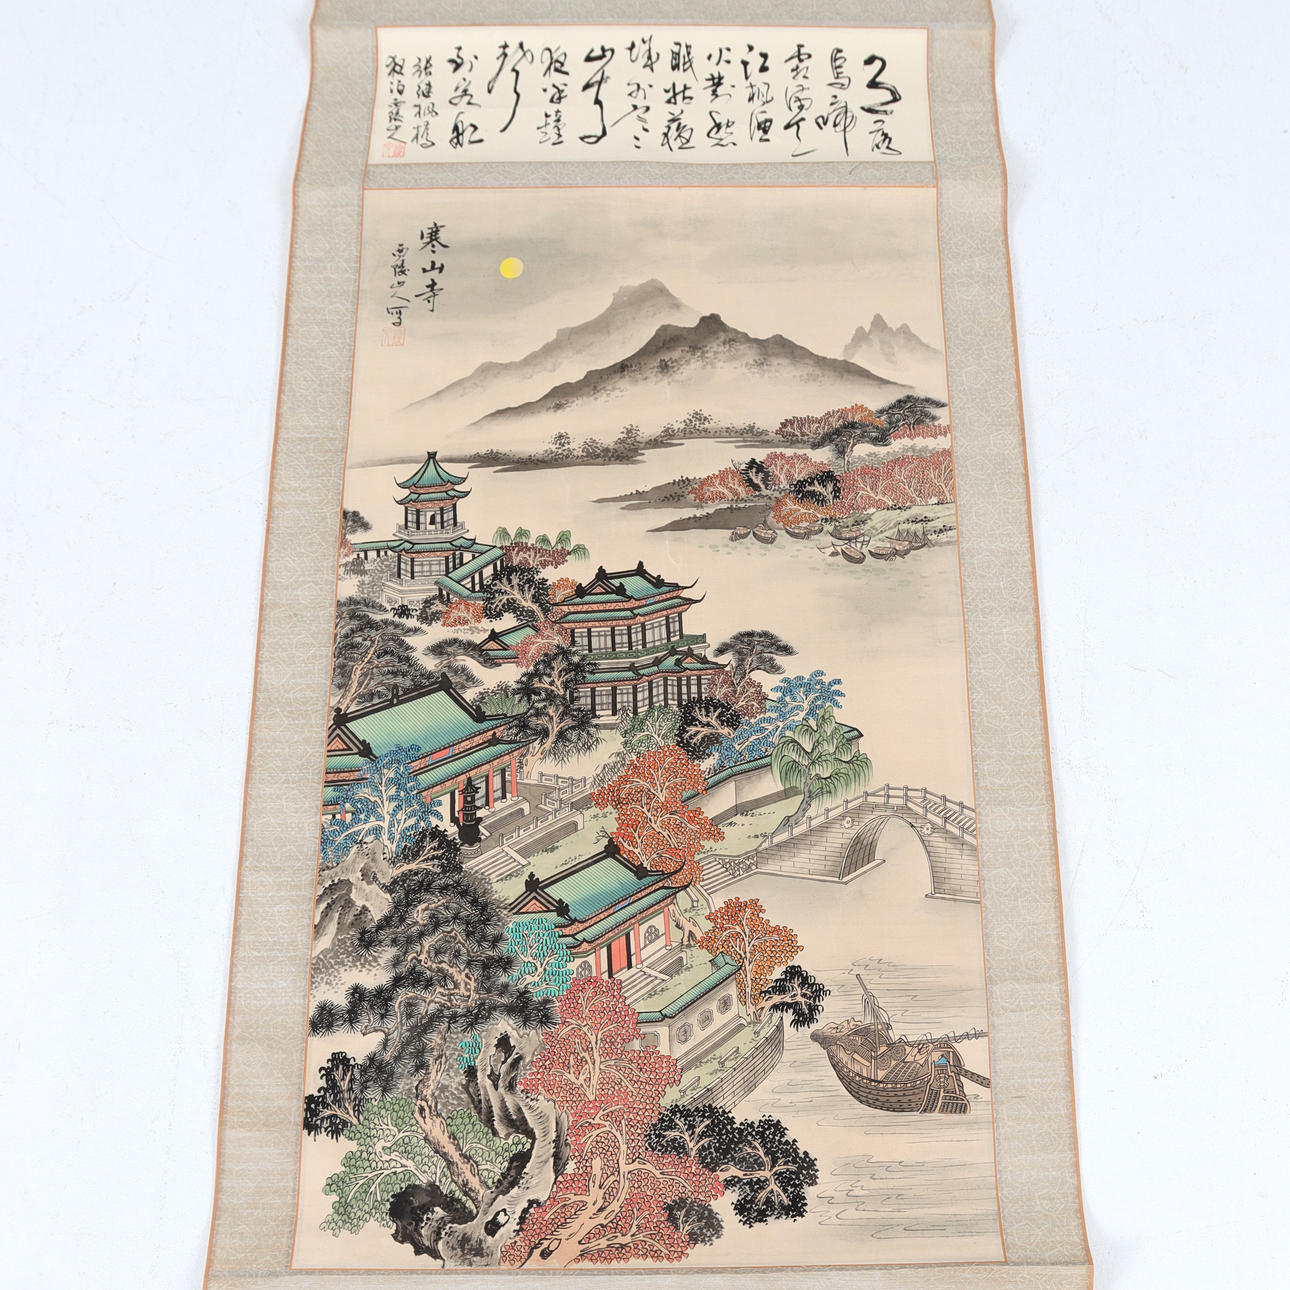 月落
烏啼
霜滿天
江楓漁
火對愁
眠姑蘇
城外寒
山寺
夜半鐘
聲
到客船
張継楓橋
夜泊
寒山寺
西陵山人写